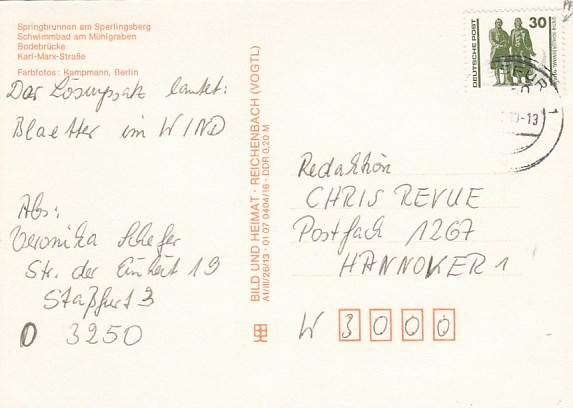 Springbrunnen am Sperlingsberg
Schwimmbad am Mühlgraben
Bodebrücke
Karl-Marx-Straße
Farbfotos: Kampmann, Berlin
Der Lösungssatz lautet:
Blaetter im WIND
Abs:
Veronika Schefer
Str. der Einheit 19
Staßfurt 3
O 3250
BILD UND HEIMAT · REICHENBACH (VOGTL)
A1/III/26/13 · 01 07 0404/16 · DDR 0,20 M
DEUTSCHE POST
30
1
-13
Redaktion
CHRIS REVUE
Postfach 1267
HANNOVER 1
W 3000